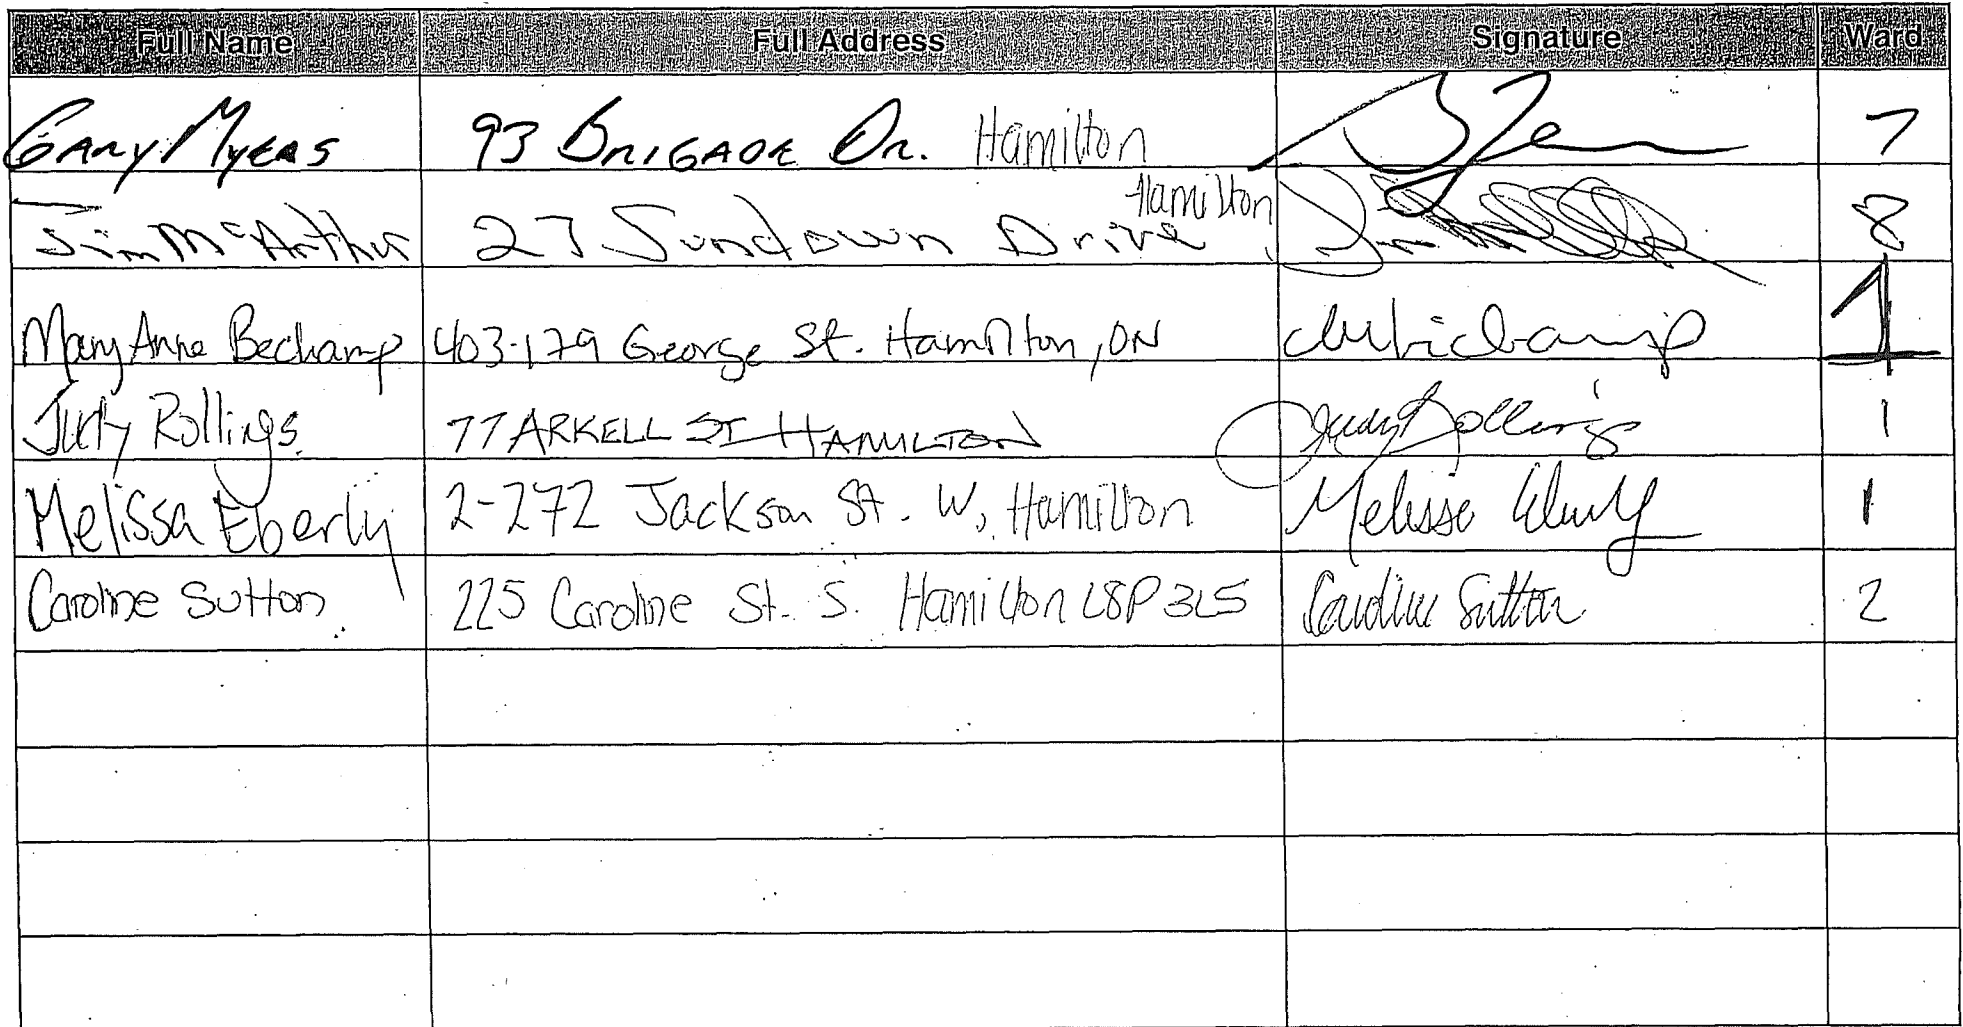 Full Name Full Address Signature Ward
GARY MYERS 93 BRIGADE DR. Hamilton 7
Jim McArthur 27 Sundown Drive Hamilton 8
Mary Anne Bechamp 403-179 George St. Hamilton, ON 1
Judy Rollings 77 ARKELL ST HAMILTON Judy Rollings 1
Melissa Eberly 2-272 Jackson St. W, Hamilton Melissa Eberly 1
Caroline Sutton 225 Caroline St. S. Hamilton L8P 3L5 Caroline Sutton 2